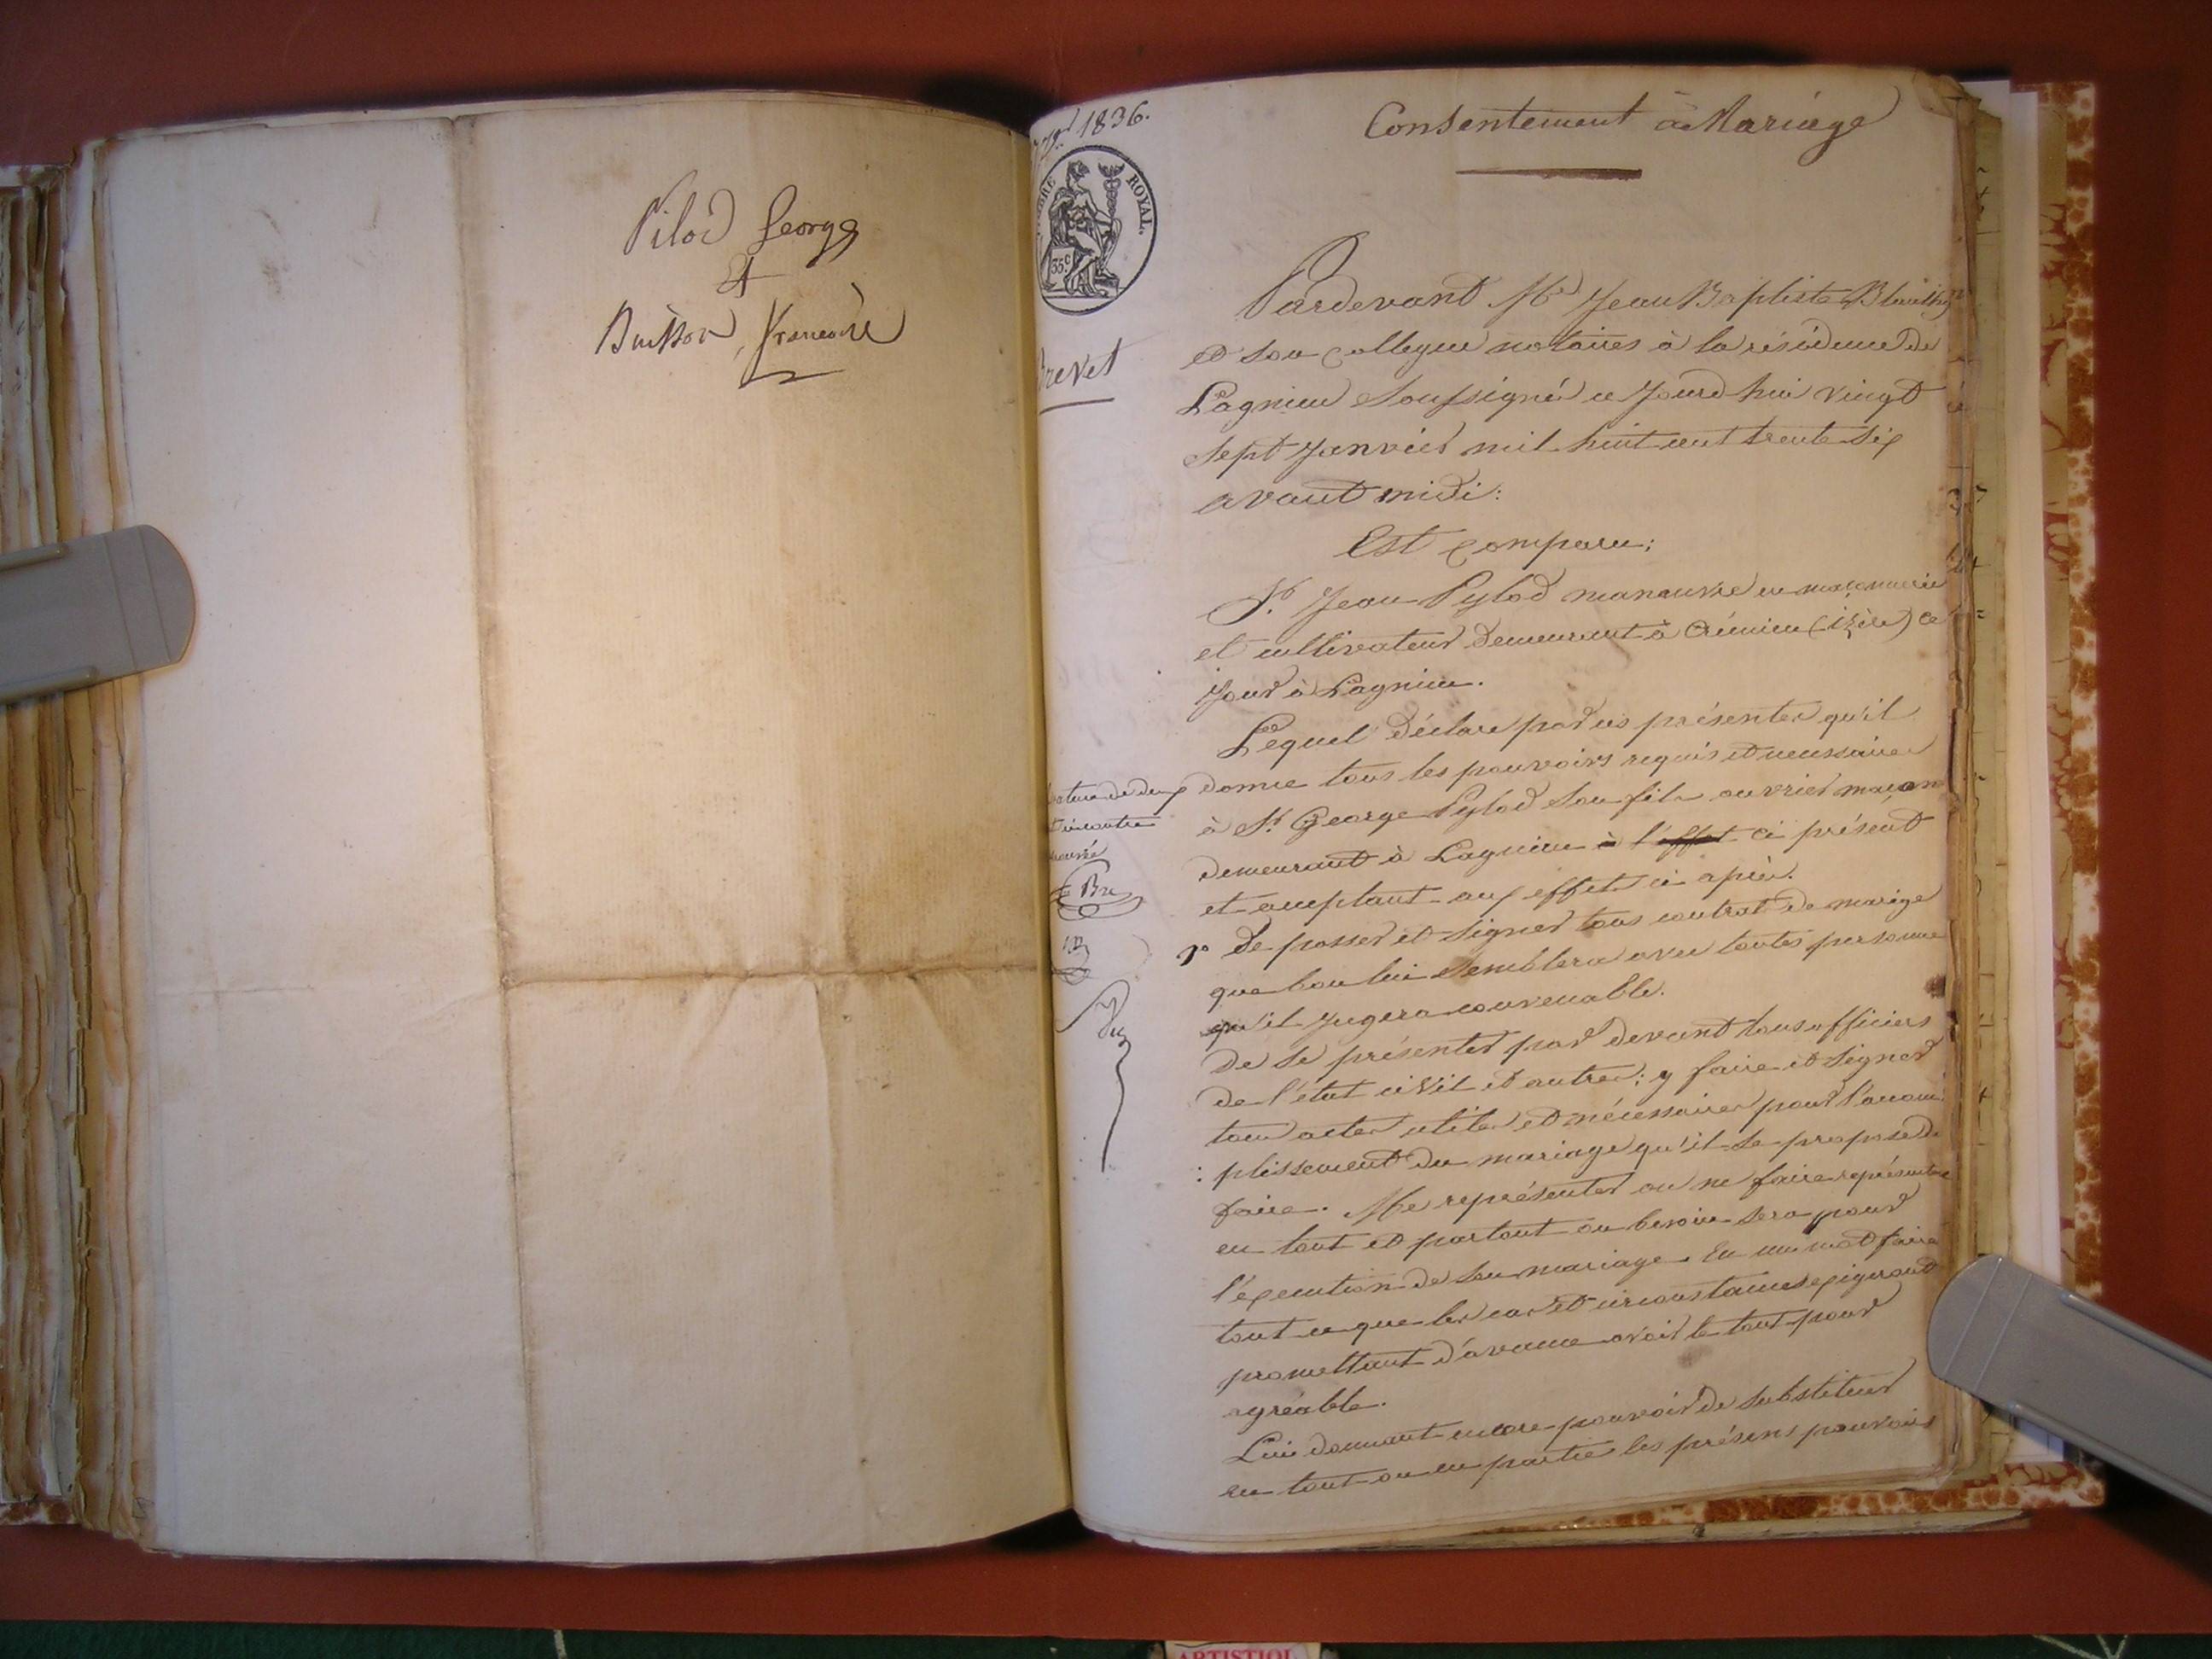 Pilod George
et
Buisson, Francoise
1836.
Consentement à Mariage
TIMBRE ROYAL.
35 c
Brevet
Pardevant Me Jean Baptiste
et son collegue notaires à la résidence de
Lagnieu soussigné ce jourd'hui vingt
sept janvier mil huit cent trente six
avant midi:
Est comparu;
Sr. Jean Pylod manœuvre en maçonnerie
et cultivateur demeurant à Crémieu (izère) ce
jour à Lagnieu.
Lequel déclare par ces présentes qu'il
donne tous les pouvoirs requis et necessaires
à Sr. George Pylod son fils ouvrier maçon
demeurant à Lagnieu à l'effet ci présent
et acceptant aux effets ci après.
1o De passer et signer tous contrat de marige
que bon lui semblera avec toutes personne
qu'il jugera convenable.
De se présenter par devant tous officiers
de l'état civil et autres; y faire et signer
tous actes utiles et nécessaires pour l'accom:
: plissement du mariage qu'il se propose de
faire. Me représenter ou me faire représenter
en tout et partout ou besoin sera pour
l'éxecution de son mariage. En un mot faire
tout ce que les cas et circonstances exigeront
promettant d'avance avoir le tout pour
agréable.
Lui donnant encore pouvoir de substituer
en tout ou en partie les présens pouvoirs
ARTISTIQU